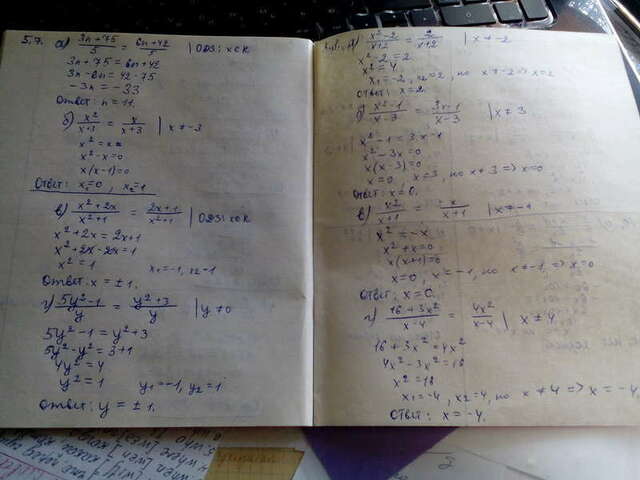 5.7. а) (3n+75)/5 = (6n+42)/5 | ОДЗ: x∈R
3n+75=6n+42
3n-6n=42-75
-3n=-33
Ответ: n=11.
б) x²/(x+3) = x/(x+3) | x≠-3
x²-x=0
x(x-1)=0
Ответ: x₁=0, x₂=1
в) (x²+2x)/(x²+1) = (2x+1)/(x²+1) | ОДЗ: x∈R
x²+2x=2x+1
x²+2x-2x=1
x²=1 x₁=-1, x₂=1
Ответ: x=±1.
г) (5y²-1)/y = (y²+3)/y | y≠0
5y²-1=y²+3
5y²-y²=3+1
4y²=4
y²=1 y₁=-1, y₂=1
Ответ: y=±1.
(x²-2)/(x+2) = 2/(x+2) | x≠-2
x²-2=2
x²=4
x₁=-2, x₂=2, но x≠-2=>x=2
Ответ: x=2.
(x²-1)/(x-3) = (3x-1)/(x-3) | x≠3
x²-1=3x-1
x²-3x=0
x(x-3)=0
x=0 x=3, но x≠3=>x=0
Ответ: x=0.
в) x²/(x+1) = x/(x+1) | x≠-1
x²=-x
x²+x=0
x(x+1)=0
x=0, x=-1, но x≠-1, =>x=0
Ответ: x=0.
г) (16+3x²)/(x-4) = 4x²/(x-4) | x≠4
16+3x²=4x²
4x²-3x²=16
x²=16
x₁=-4, x₂=4, но x≠4=>x=-4.
Ответ: x=-4.